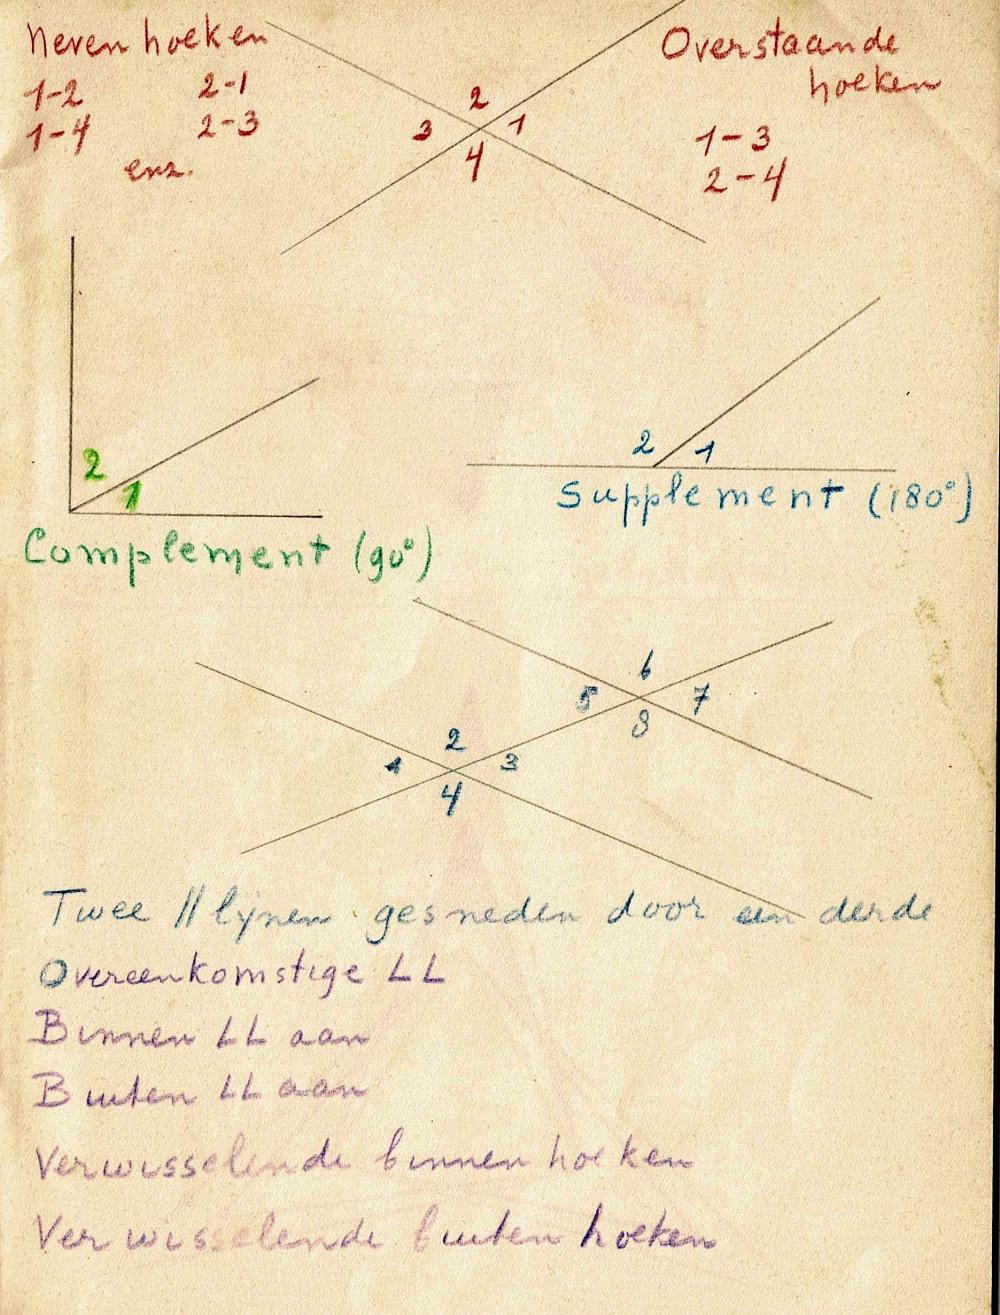 Nevenhoeken
1-2 2-1
1-4 2-3
enz.
2
3 1
4
Overstaande
hoeken
1-3
2-4
2
1
Complement (90°)
2 1
Supplement (180°)
6
5 7
8
2
1 3
4
Twee // lijnen gesneden door een derde
Overeenkomstige LL
Binnen LL aan
Buiten LL aan
Verwisselende binnenhoeken
Verwisselende buitenhoeken